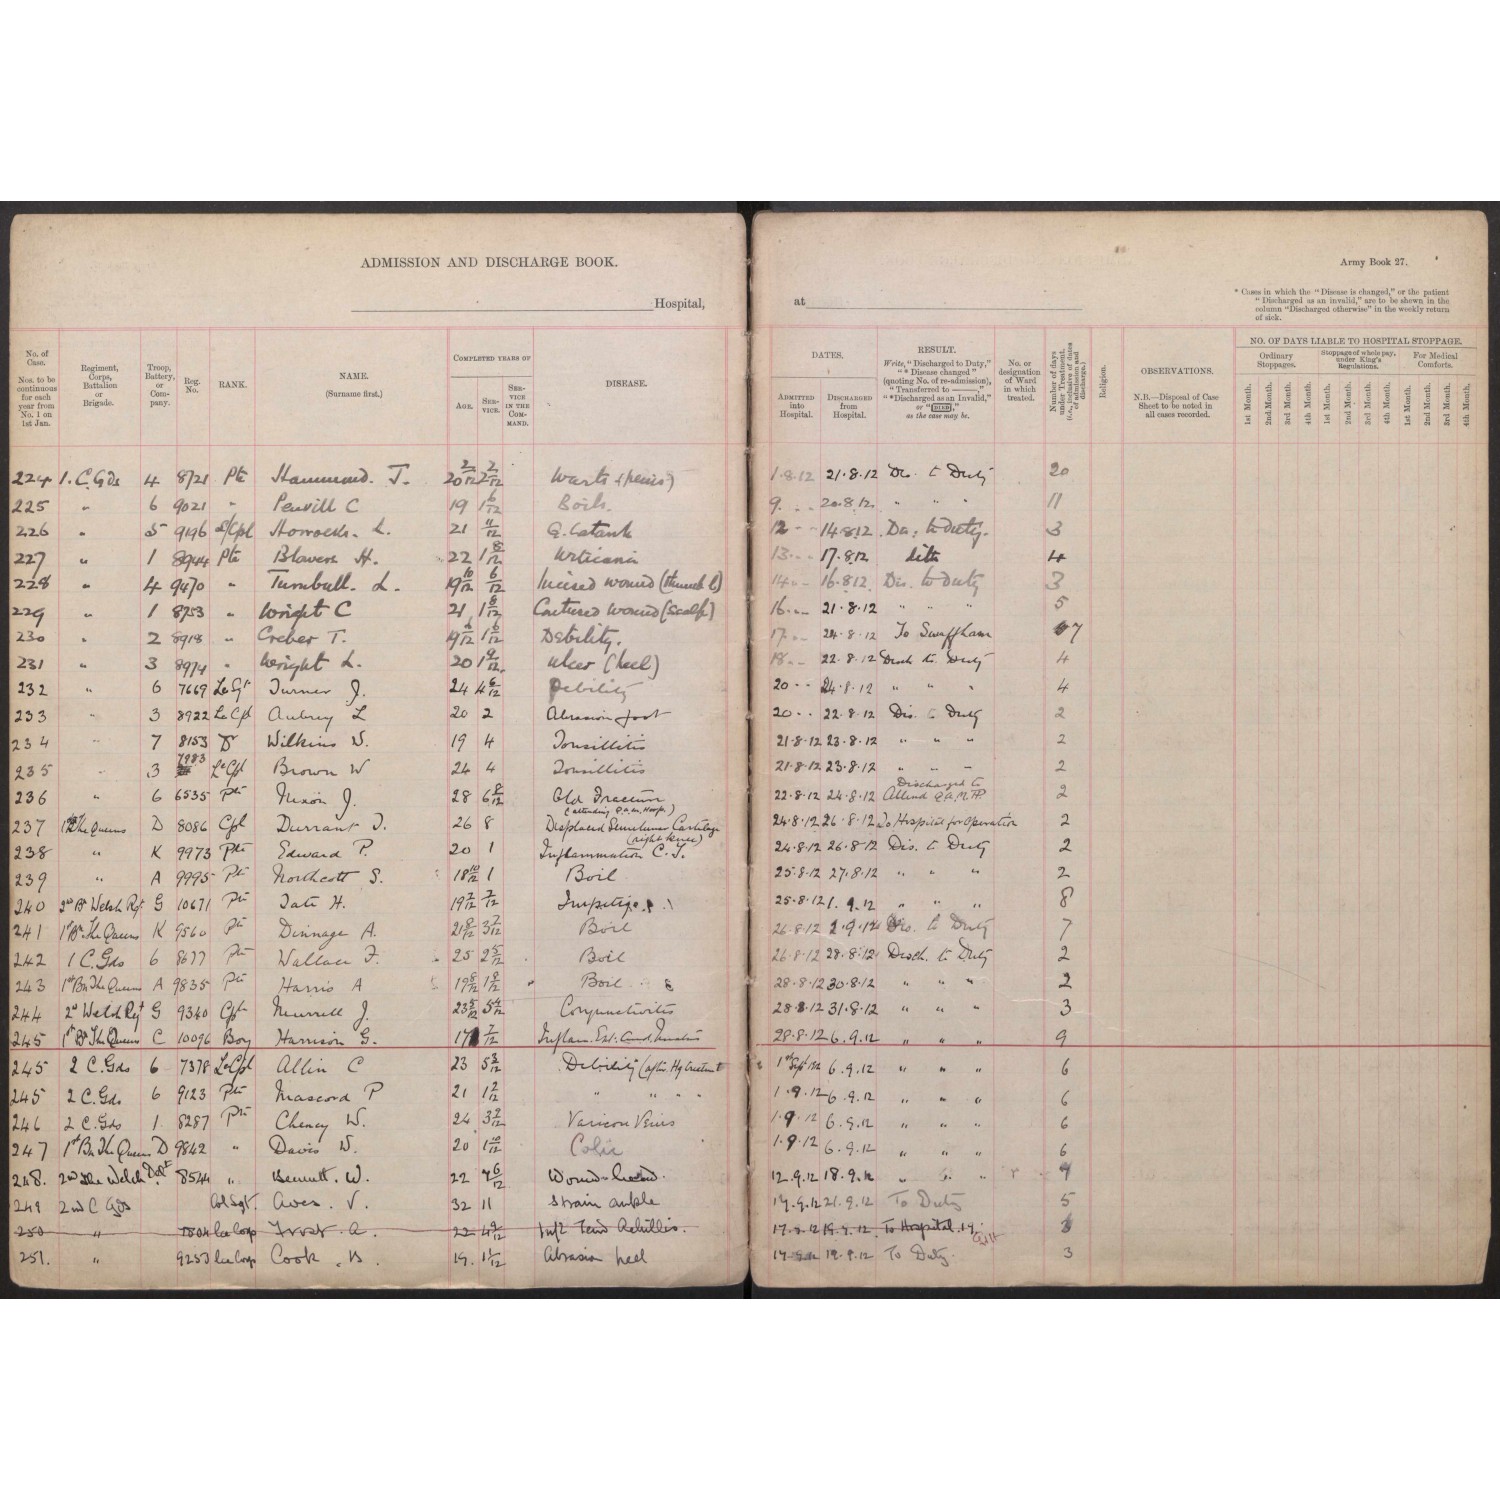 ADMISSION AND DISCHARGE BOOK.
Hospital,
at
Army Book 27.
* Cases in which the "Disease is changed," or the patient
"Discharged as an invalid," are to be shewn in the
column "Discharged otherwise" in the weekly return
of sick.
No. of Case. Nos. to be continuous for each year from No. 1 on 1st Jan.
Regiment, Corps, Battalion or Brigade.
Troop, Battery, or Company.
Reg. No.
RANK.
NAME. (Surname first.)
COMPLETED YEARS OF
AGE.
SERVICE.
SERVICE IN THE COMMAND.
DISEASE.
DATES.
ADMITTED into Hospital.
DISCHARGED from Hospital.
RESULT. Write, "Discharged to Duty," "* Disease changed" (quoting No. of re-admission), "Transferred to ——," "*Discharged as an Invalid," or "DIED," as the case may be.
No. or designation of Ward in which treated.
Number of days under Treatment. (i.e., inclusive of dates of admission and discharge.)
Religion.
OBSERVATIONS. N.B.—Disposal of Case Sheet to be noted in all cases recorded.
NO. OF DAYS LIABLE TO HOSPITAL STOPPAGE.
Ordinary Stoppages.
Stoppage of whole pay, under King's Regulations.
For Medical Comforts.
1st Month. 2nd Month. 3rd Month. 4th Month. 1st Month. 2nd Month. 3rd Month. 4th Month. 1st Month. 2nd Month. 3rd Month. 4th Month.
224 1. C. Gds 4 8721 Pte Hammond. J. 20 2/12 2 2/12 Warts (penis) 1.8.12 21.8.12 Dis. to Duty 20
225 " 6 9021 " C 19 1 6/12 Boils. 9. 20.8.12 " " " 11
226 " 5 9196 L/Cpl Horrocks. L. 21 11/12 G. Catarrh 12 14.8.12 Dis. to Duty. 3
227 " 1 8944 Pte Blowers H. 22 1 8/12 Urticaria 13 17.8.12 ditto 4
228 " 4 9470 " Turnbull. L. 19 10/12 6/12 Incised wound (thumb l) 14 16.8.12 Dis. to Duty 3
229 " 1 8753 " Wright C 21 1 8/12 Contused wound (Scalp) 16 21.8.12 " " " 5
230 " 2 8918 " Creber T. 19 6/12 1 6/12 Debility. 17 24.8.12 To Swaffham 7
231 " 3 8974 " Wright L. 20 1 9/12 Ulcer (heel) 18 22.8.12 Disch to Duty 4
232 " 6 7669 Turner J. 24 4 6/12 Debility 20 24.8.12 " " " 4
233 " 3 8922 Le Cpl Aubrey L 20 2 Abrasion foot 20 22.8.12 Dis. to Duty 2
234 " 7 8153 Dr Wilkins W. 19 4 Tonsillitis 21.8.12 23.8.12 " " " 2
235 " 3 7983 Le Cpl Brown W 24 4 Tonsillitis 21.8.12 23.8.12 " " " 2
236 " 6 6535 Pte Nixon J. 28 6 8/12 Old Fracture (attending Q.A.M. Hosp.) 22.8.12 24.8.12 Discharged to Attend Q.A.M.H. 2
237 The Queens D 8086 Cpl Durrant J. 26 8 Displaced Semilunar Cartilage (right knee) 24.8.12 26.8.12 To Hospital for Operation 2
238 " K 9973 Pte Edward P. 20 1 Inflammation C. T. 24.8.12 26.8.12 Dis. to Duty 2
239 " A 9995 Pte Northcott S. 18 10/12 1 Boil 25.8.12 27.8.12 " " " 2
240 2nd Bn Welsh Rgt G 10671 Pte Tate H. 19 7/12 7/12 Impetigo 25.8.12 1.9.12 " " " 8
241 1st Bn. The Queens K 9560 Pte Dinnage A. 21 8/12 3 7/12 Boil 26.8.12 2.9.12 Dis. to Duty 7
242 1 C. Gds 6 8677 Pte Wallace F. 25 2 5/12 Boil 26.8.12 28.8.12 Disch. to Duty 2
243 1st Bn The Queens A 9835 Pte Harris A 19 8/12 1 8/12 Boil 28.8.12 30.8.12 " " " 2
244 2nd Welsh Regt G 9340 Cpl Murrell J. 23 5/12 5 4/12 Conjunctivitis 28.8.12 31.8.12 " " " 3
245 1st Bn The Queens C 10096 Boy Harrison G. 17 7/12 Inflam. Ext. Aud. Meatus 28.8.12 6.9.12 " " " 9
245 2 C. Gds 6 7378 Le Cpl Allin C 23 5 3/12 Debility (after Hg treatment 1st Sept 12 6.9.12 " " " 6
245 2 C. Gds 6 9123 Pte Mascord P 21 1 2/12 " " " " 1.9.12 6.9.12 " " " 6
246 2 C. Gds 1 8287 Pte Cheney W. 24 3 2/12 Varicose Veins 1.9.12 6.9.12 " " " 6
247 1st Bn The Queens D 9842 " Davis W. 20 1 10/12 Colic 1.9.12 6.9.12 " " " 6
248. 2nd The Welch Dept 8544 " Bennett. W. 22 4 6/12 Wound 12.9.12 18.9.12 " " " 7
249 2nd C Gds Col Sgt. Aves. V. 32 11 Strain ankle 17.9.12 21.9.12 To Duty 5
250 " 7804 Lce Corp Frost. A. 22 4 9/12 Inf: Tend Achillis. 17.9.12 19.9.12 To Hospital 3
251. " 9253 Lce Corp Cook. B. 19. 1 1/12 Abrasion heel 17.9.12 19.9.12 To Duty. 3